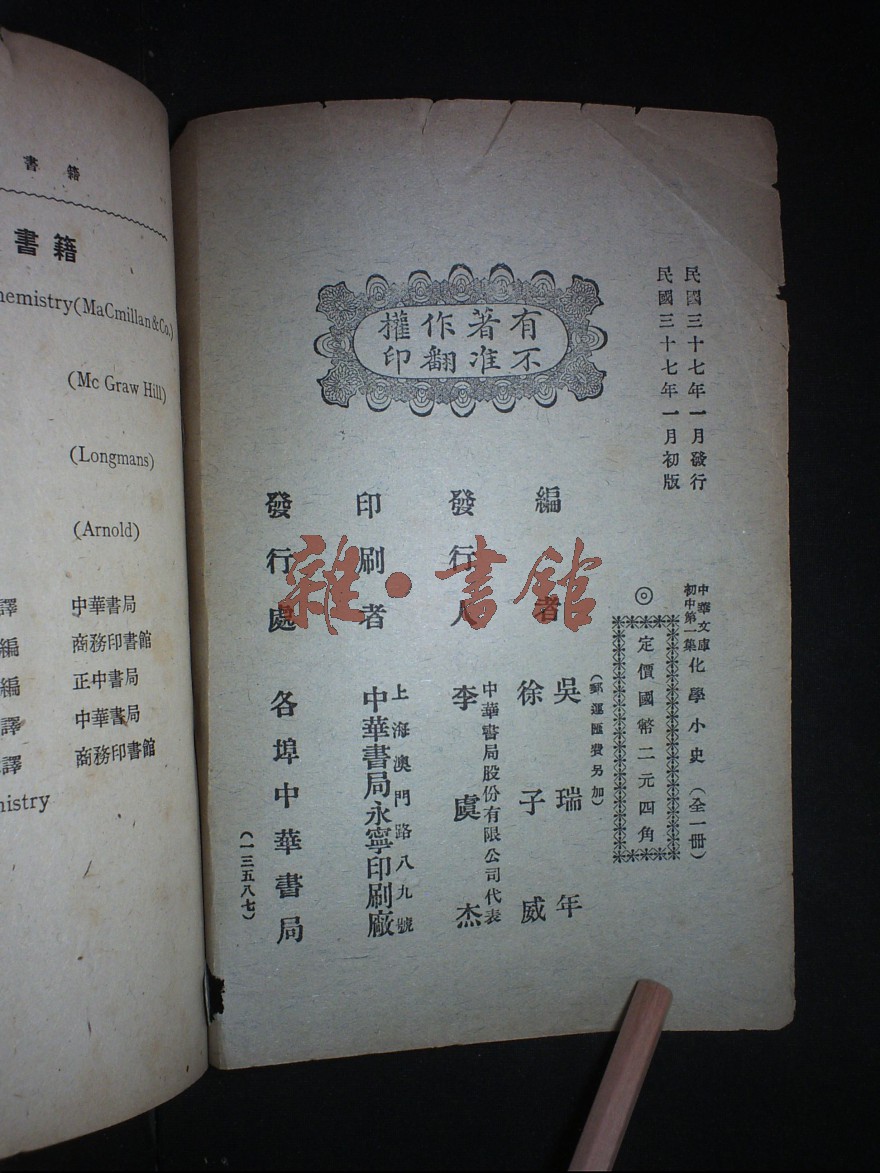 書籍
書籍
hemistry(MaCmillan&Co.)
(Mc Graw Hill)
(Longmans)
(Arnold)
譯 中華書局
編 商務印書館
編 正中書局
譯 中華書局
譯 商務印書館
nistry
民國三十七年一月發行
民國三十七年一月初版
有著作權
不准翻印
中華文庫
初中第一集
化學小史(全一冊)
◎定價國幣二元四角
(郵運匯費另加)
編者
吳瑞年
徐子威
發行人
中華書局股份有限公司代表
李虞杰
印刷者
上海澳門路八九號
中華書局永寧印刷廠
發行處
各埠中華書局
(一三五八七)
雜·書館